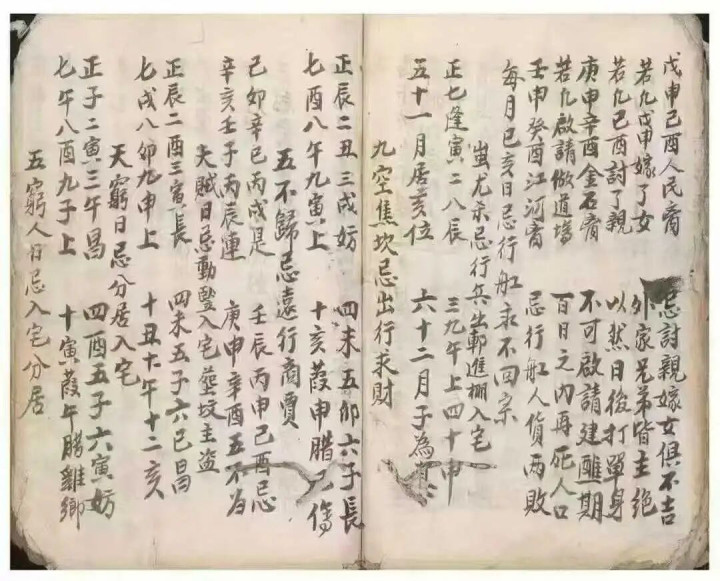 戊申己酉人民离 忌討親嫁女俱不吉
若凡戊申嫁了女 外家兄弟皆主絶
若凡己酉討了親 以然日後打單身
庚申辛酉金石离 不可啟請建醮期
若凡啟請做道塲 百日之内再死人口
壬申癸酉江河离 忌行船人貨两敗
每月巳亥日忌行船永不回宗
蚩尤杀忌行兵出郭進棚入宅
正七逢寅二八辰 三九午上四十申
五十一月居亥位 六十二月子為
九空焦坎忌出行求財
正辰二丑三戌妨 四未五卯六子長
七酉八午九寅上 十亥葭申腊巳傷
五不歸忌遠行商賈
己卯辛巳丙戌是 壬辰丙申己酉忌
辛亥壬子丙辰連 庚申辛酉五不為
天賊日忌動竪入宅塟坟主盗
正辰二酉三寅長 四未五子六巳昌
七戌八卯九申上 十丑十一午十二亥
天窮日忌分居入宅
正子二寅三午昌 四酉五子六寅妨
七午八酉九子上 十寅葭午腊雞鄉
五窮人日忌入宅分居